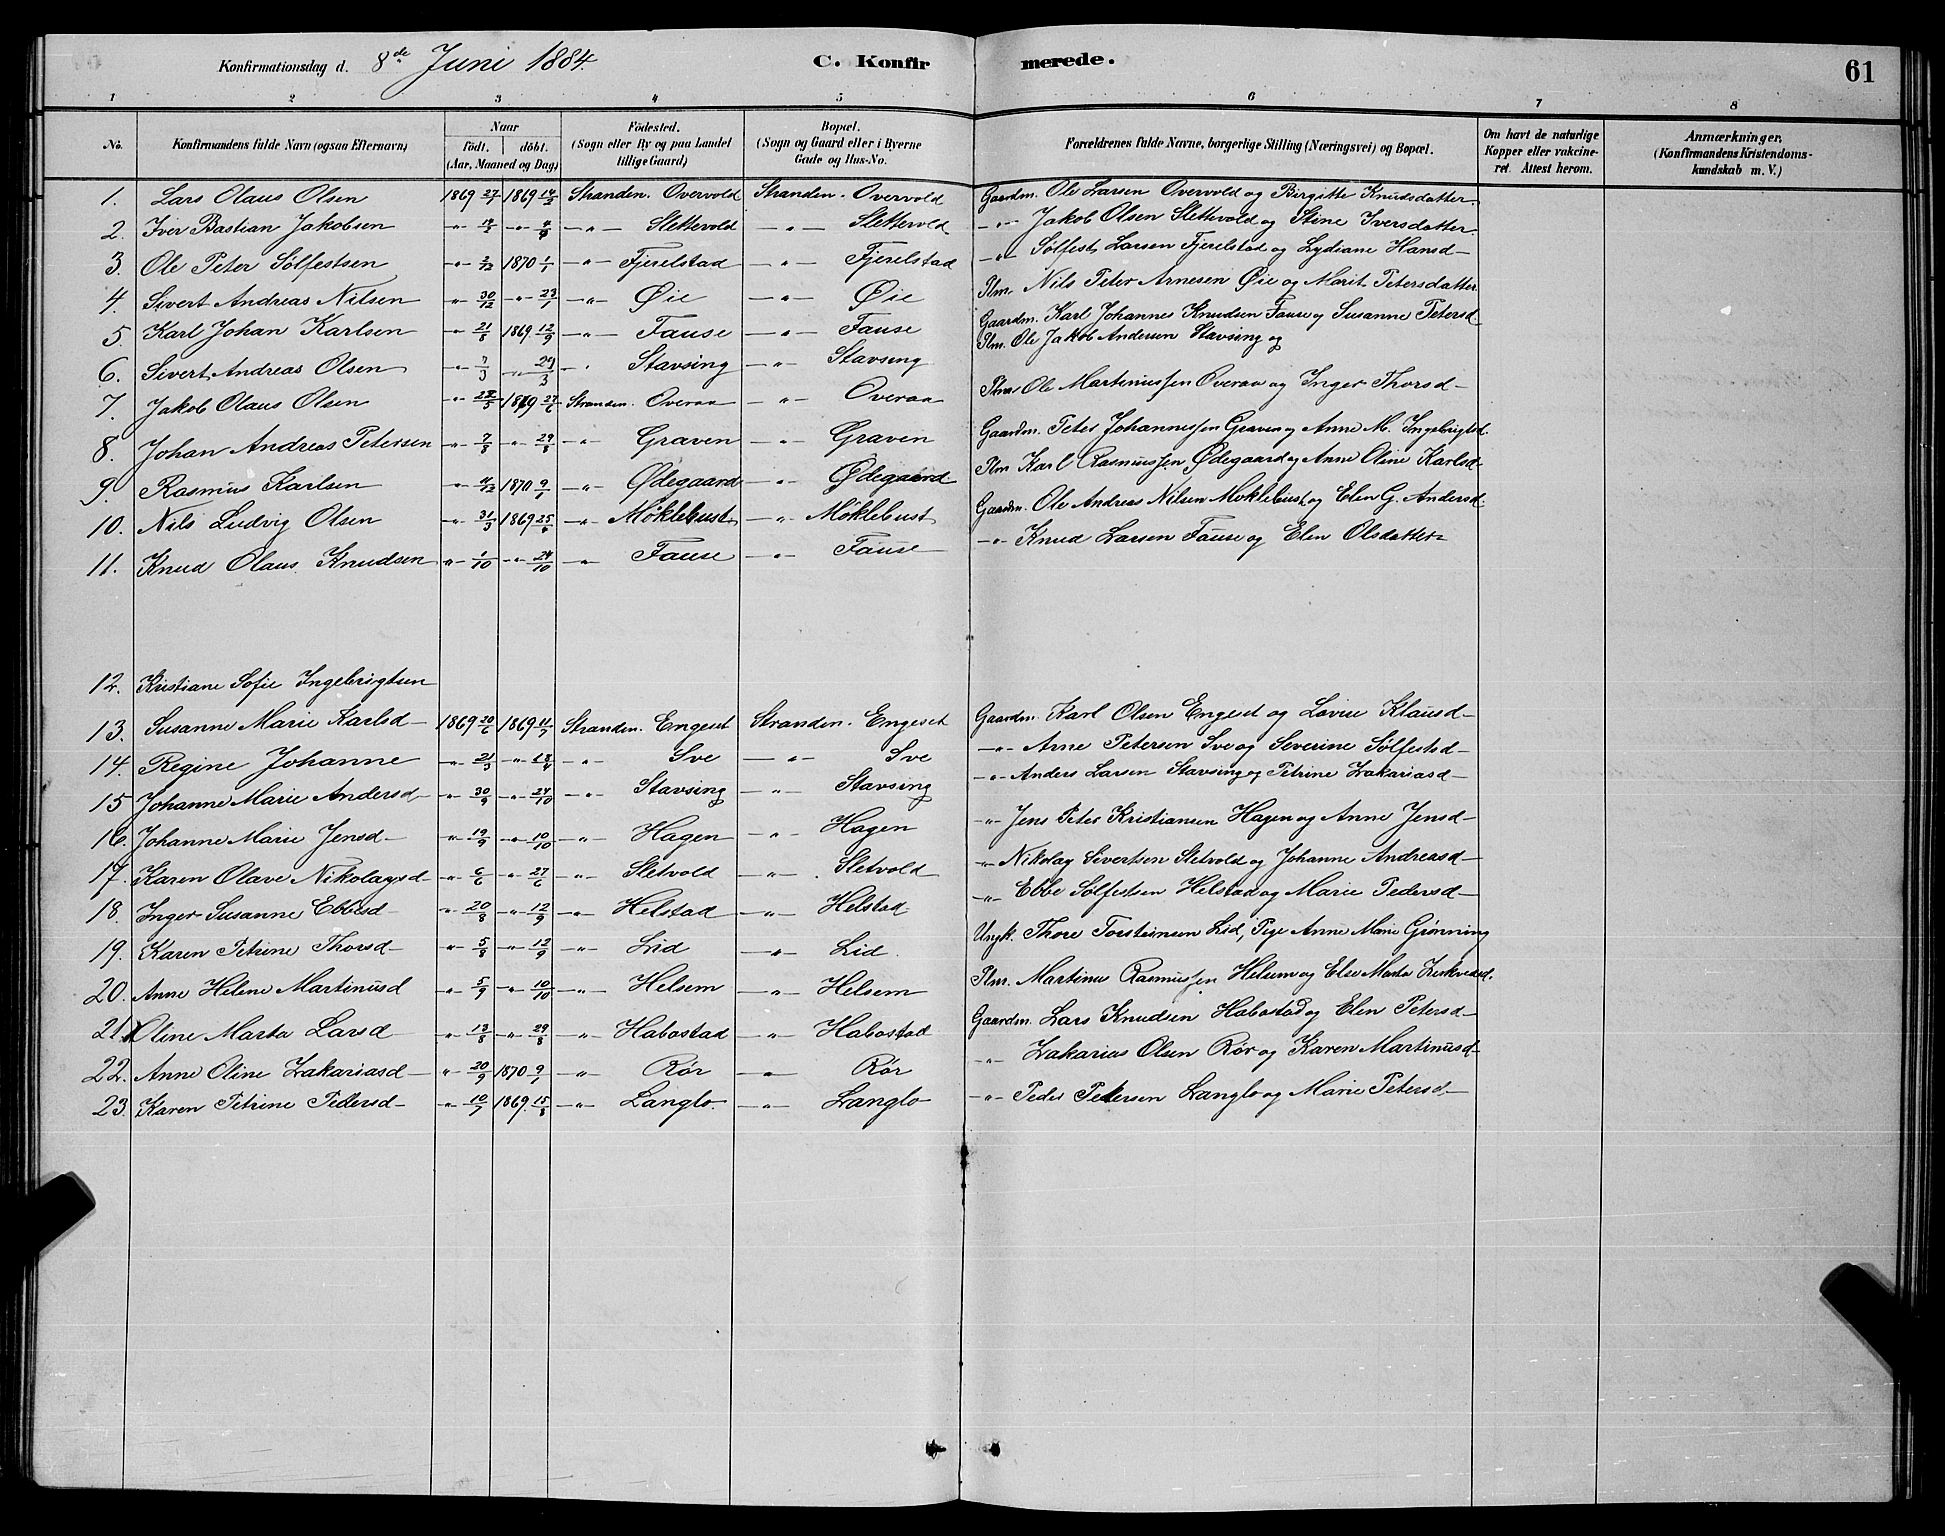 Konfirmationsdag d. 8de Juni 1884. C. Konfirmerede. 61
1 2 3 4 5 6 7 8
No. Konfirmandens fulde Navn (ogsaa Efternavn) Naar födt. döbt. (Aar, Maaned og Dag) Födested. (Sogn eller By og paa Landet tillige Gaard) Bopæl. (Sogn og Gaard eller i Byerne Gade og Hus-No. Forældrenes fulde Navne, borgerlige Stilling (Næringsvei) og Bopæl. Om havt de naturlige Kopper eller vakcineret. Attest herom. Anmærkninger. (Konfirmandens Kristendomskundskab m. V.)
1. Lars Olaus Olsen 1869 27/7 1869 14/8 Stranden. Overvold Stranden. Overvold Gaardm. Ole Larsen Overvold og Birgitte Knudsdatter.
2. Iver Bastian Jakobsen -"- -"- -"- Slettevold -"- Slettevold -"- Jakob Olsen Slettevold og Stine Iversdatter
3. Ole Peter Sølfestsen -"- 2/12 1870 1/1 -"- Fjerelstad -"- Fjerelstad -"- Sølfest Larsen Fjerelstad og Lydiane Hansd-
4. Sivert Andreas Nilsen -"- 30/12 -"- 23/1 -"- Øie -"- Øie Plm. Nils Peter Arnesen Øie og Marit Petersdatter
5. Karl Johan Karlsen -"- 21/8 1869. 12/9 -"- Fause -"- Fause Gaardm. Karl Johannes Knudsen Fause og Susanne Petersd
6. Sivert Andreas Olsen -"- 7/3 -"- 29/3 -"- Stavsing -"- Stavsing Plm. Ole Jakob Andersen Stavsing og
7. Jakob Olaus Olsen -"- 28/5 1869 27/6 Stranden. Overaa -"- Overaa Plm. Ole Martinussen Overaa og Inger Thorsd-
8. Johan Andreas Petersen -"- 7/8 -"- 29/8 -"- Graven -"- Graven Gaardm. Peter Johannessen Graven og Anne M. Ingebrigtsd.
9. Rasmus Karlsen -"- 4/12 1870 9/1 -"- Ødegaard -"- Ødegaard Plm Karl Rasmussen Ødegaard og Anne Oline Karlsd-
10. Nils Ludvig Olsen -"- 31/3 1869 25/4 -"- Møklebust -"- Møklebust Gaardm. Ole Andreas Nilsen Moklebust og Elen G. Andersd
11. Knud Olaus Knudsen -"- 1/10 -"- 24/10 -"- Fause -"- Fause -"- Knud Larsen Fause og Elen Olsdatter
12. Kristiane Sofie Ingebrigtsen
13. Susanne Marie Karlsd- 1869 20/6 1869 11/7 Stranden. Engeset Stranden. Engeset Gaardm. Karl Olsen Engeset og Lovise Klausd-
14. Regine Johanne -"- 21/3 -"- 18/4 -"- Sve -"- Sve -"- Arne Petersen Sve og Severine Sølfestsd-
15 Johanne Marie Andersd- -"- 30/9 -"- 24/10 -"- Stavsing -"- Stavsing -"- Anders Larsen Stavsing og Petrine Zakariasd-
16. Johanne Marie Jensd- -"- 19/9 -"- 10/10 -"- Hagen -"- Hagen -"- Jens Peter Kristiansen Hagen og Anne Jensd-
17. Karen Olave Nikolaysd- -"- 6/6 -"- 27/6 -"- Sletvold -"- Sletvold -"- Nikolay Sivertsen Sletvold og Johanne Andreasd-
18. Inger Susanne Ebbesd- -"- 20/8 -"- 12/9 -"- Helstad -"- Helstad -"- Ebbe Sølfestsen Helstad og Marie Pedersd-
19. Karen Petrine Thorsd- -"- 5/8 -"- 12/9 -"- Lid -"- Lid. Ungk. Thore Torsteinsen Lid, Pige Anne Marie Grønning
20. Anne Helene Martinusd -"- 5/9 -"- 10/10 -"- Helsem -"- Helsem Plm. Martinus Rasmussen Helsem og Else Marta
21. Oline Marta Larsd -"- 13/8 -"- 29/8 -"- Habostad -"- Habostad Gaardm. Lars Knudsen Habostad og Elen Petersd-
22. Anne Oline Zakariasd- -"- 20/9 1870 9/1 -"- Rør -"- Rør -"- Zakarias Olsen Rør og Karen Martinusd-
23. Karen Petrine Pedersd- -"- 10/7 1869. 15/8 -"- Langlo. -"- Langlo -"- Peder Petersen Langlo og Marie Petersd-